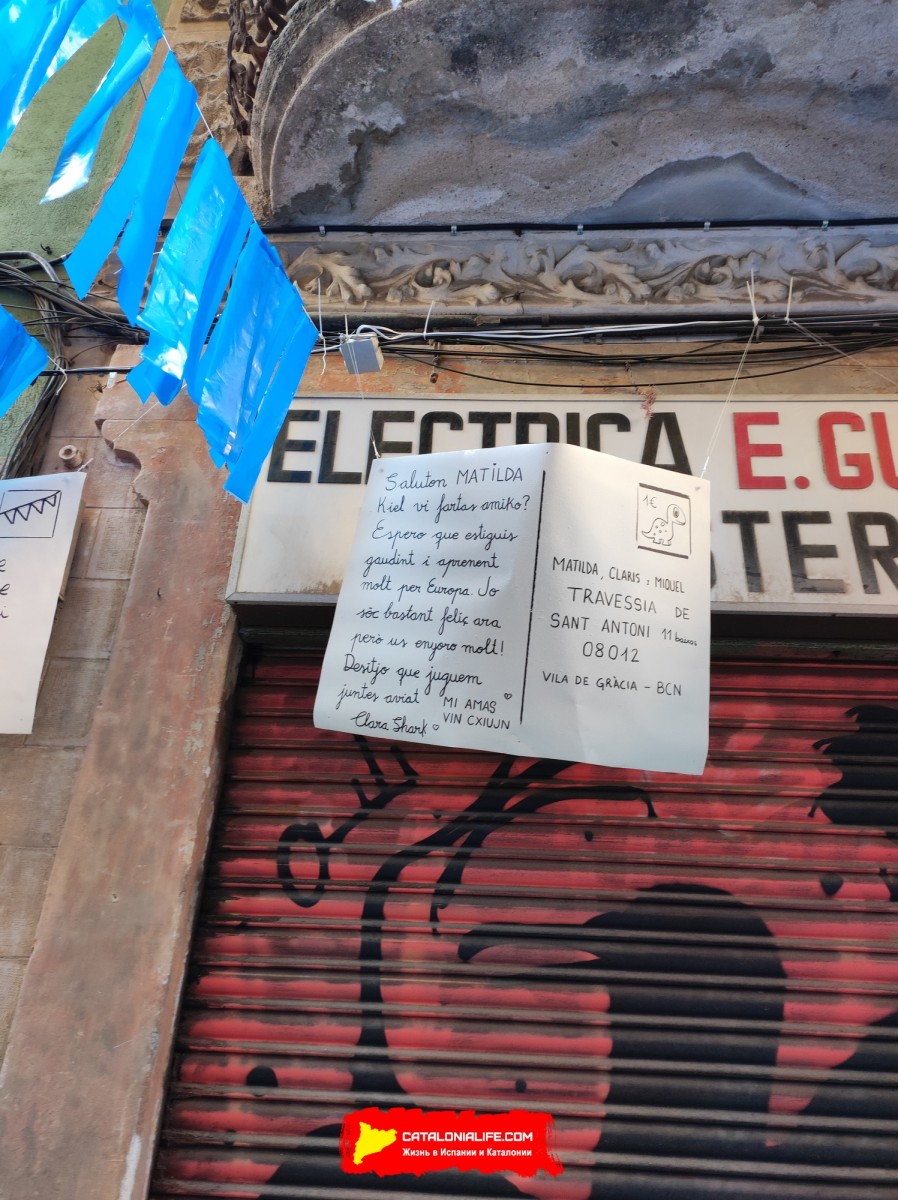 ELECTRICA E. GU
STER
Saluton MATILDA
Kiel vi fartas amiko?
Espero que estiguis
gaudint i aprenent
molt per Europa. Jo
sóc bastant feliç ara
però us enyoro molt!
Desitjo que juguem
juntes aviat
MI AMAS
VIN CXIUJN
Clara Shark
1€
MATILDA, CLARIS i MIQUEL
TRAVESSIA DE
SANT ANTONI 11 baixos
08012
VILA DE GRÀCIA - BCN
CATALONIALIFE.COM
Жизнь в Испании и Каталонии